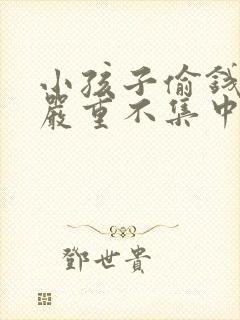 小孩子偷錢
嚴重不集中
鄧世貴